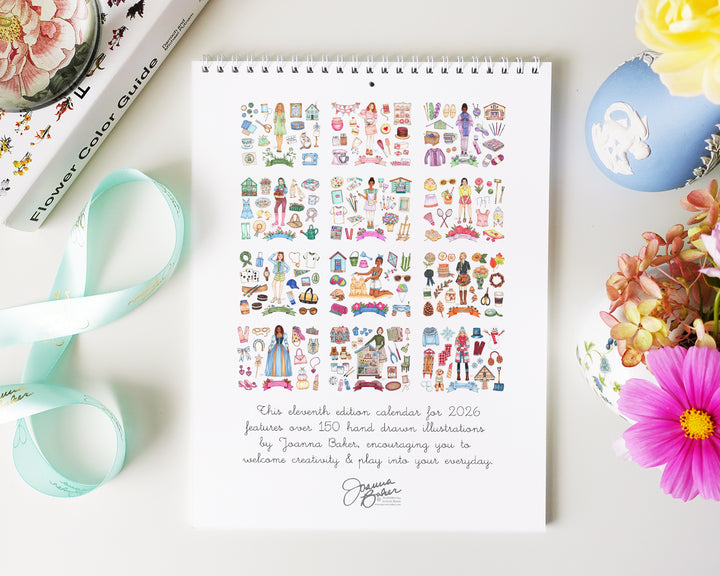 Flower Color Guide
This eleventh edition calendar for 2026
features over 150 hand drawn illustrations
by Joanna Baker, encouraging you to
welcome creativity & play into your everyday.
Joanna
Baker